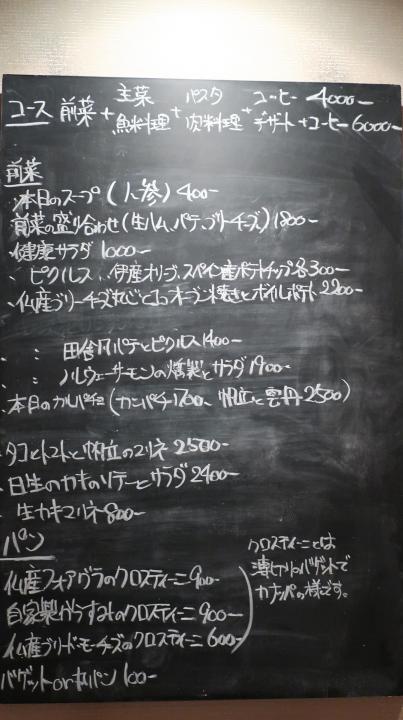 主菜 パスタ コーヒー 4000-
コース 前菜 + 魚料理 + 肉料理 + デザート + コーヒー 6000-
前菜
・本日のスープ (人参) 400-
前菜の盛り合わせ (生ハム、パテ、ブリーチーズ) 1800-
健康サラダ 1000-
・ピクルス、伊産オリーブ、スペイン産ポテトチップ 各300-
・仏産ブリーチーズ丸ごと1コオーブン焼きとボイルポテト 2200-
・ : 田舎風パテとピクルス 1400-
・ : ノルウェーサーモンの燻製とサラダ 1900-
本日のカルパッチョ (カンパチ 1700、帆立と雲丹 2500)
タコとトマトと帆立のマリネ 2500-
・日生のカキのソテーとサラダ 2400-
・生カキマリネ 800-
パン
仏産フォアグラのクロスティーニ 900-
自家製からすみのクロスティーニ 900-
仏産ブリードモーチーズのクロスティーニ 600-
バゲット or 丸パン 100-
クロスティーニとは
薄切りバゲットで
カナッペの様です。